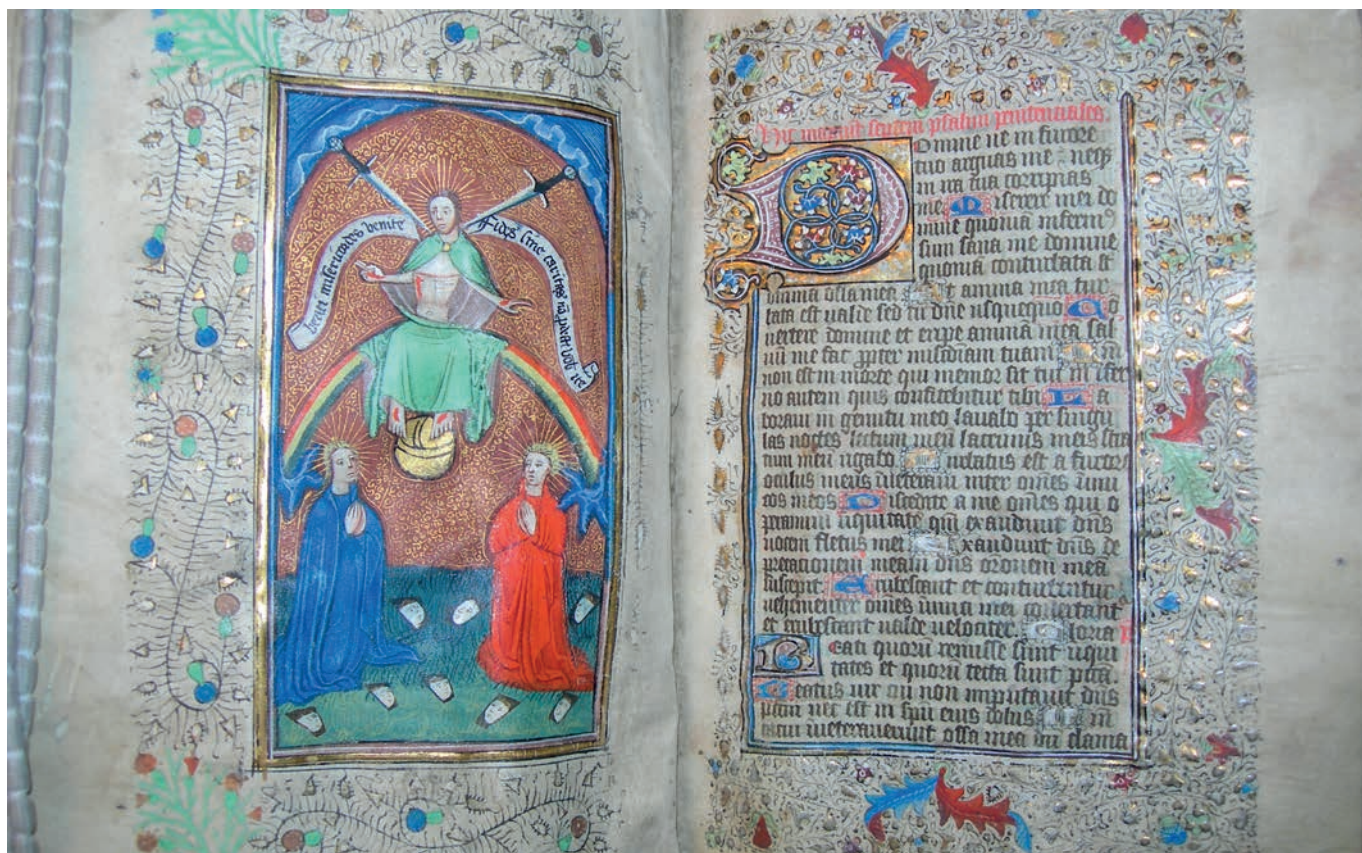 beati misericordes venite
Fides sine
Hic incipiunt septem psalmi penitenciales
Domine ne in furore
tuo arguas me neqȝ
in ira tua corripias
me Miserere mei do
mine quoniā infirmꝰ
sum sana me domine
quoniā conturbata sūt
omnia ossa mea Et anima mea tur
bata est valde sed tu dn̄e usquequo Co
vertere domine et eripe animā meā sal
vū me fac ꝓpter misc̄diam tuam Qm̄
non est in morte qui memor sit tui in ifer
no autem quis confitebitur tibi La
boravi in gemitu meo lavabo per singu
las noctes lectum meū lacrimis meis stra
tum meū rigabo Turbatus est a furore
oculus meus inveteravi inter om̄es inimi
cos meos Discedite a me om̄es qui o
peramini iniquitatē qm̄ exaudivit dn̄s
vocem fletus mei Exaudivit dn̄s de
precationem meam dn̄s or̄onem meā
suscepit Erubescant et conturbentur
vehementer om̄es inimici mei convertant
et erubescant valde velociter Gloria
Beati quorū remisse sunt iniqui
tates et quorū tecta sunt pctā
Beatus vir cui non imputavit dn̄s
pctm̄ nec est in spū eius dolus Qm̄
tacui inveteraverunt ossa mea dū clama